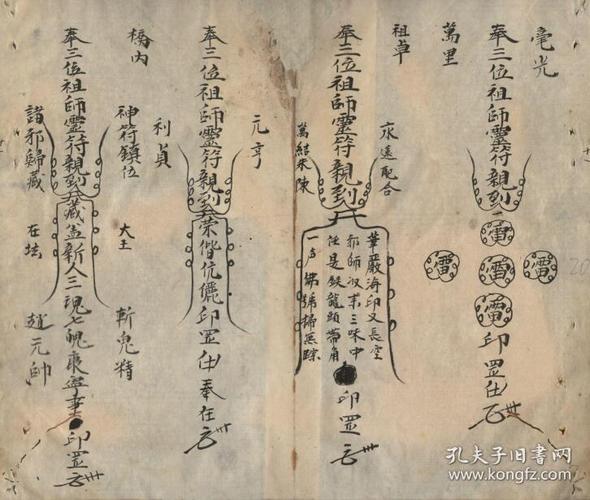 毫光
奉三位祖師靈符親到
雷
雷
雷
雷
雷
印罡
萬里
祖卓
奉三位祖師靈符親到
永遠配合
萬結朱陳
華嚴海印又長空
邪師似來三味中
任是鉄龍頭帶角
一声佛號掃無踪
印罡
元亨
利貞
奉三位祖師靈符親到
榮偕伉儷印罡
奉在
橋內
神符鎮位
大王
斬鬼精
奉三位祖師靈符親到
藏盖新人三魂七魄康寧
印罡
諸邪歸藏
在坛
趙元帥
孔夫子旧書网
www.kongfz.com